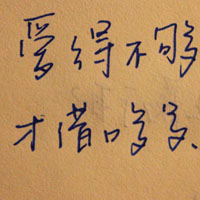 爱得不够
才借口多多、